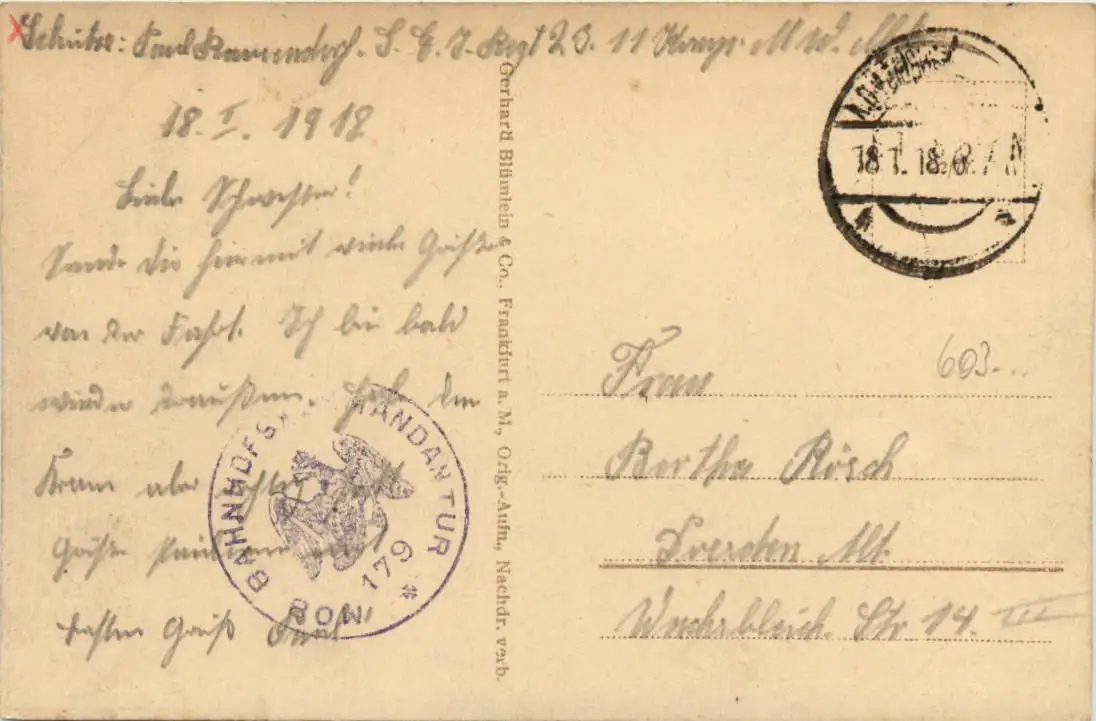 Schütze: Paul S. E. J. Regt 23. 11 Komp. M W.
18. I. 1918
Liebe Schwester!
Sende dir hiermit viele Grüße
von der Fahrt. Ich bin bald
wieder draußen. Habe den
Kram aber
Grüße
besten Gruß Paul
BAHNHOFS MANDANTUR
MOB 179 *
Gerhard Blümlein & Co., Frankfurt a. M., Orig.-Aufn., Nachdr. verb.
18 1. 18. 6. 7 N
603
Frau
Bertha Rösch
Dresden Alt.
Wachsbleich. Str 14. III